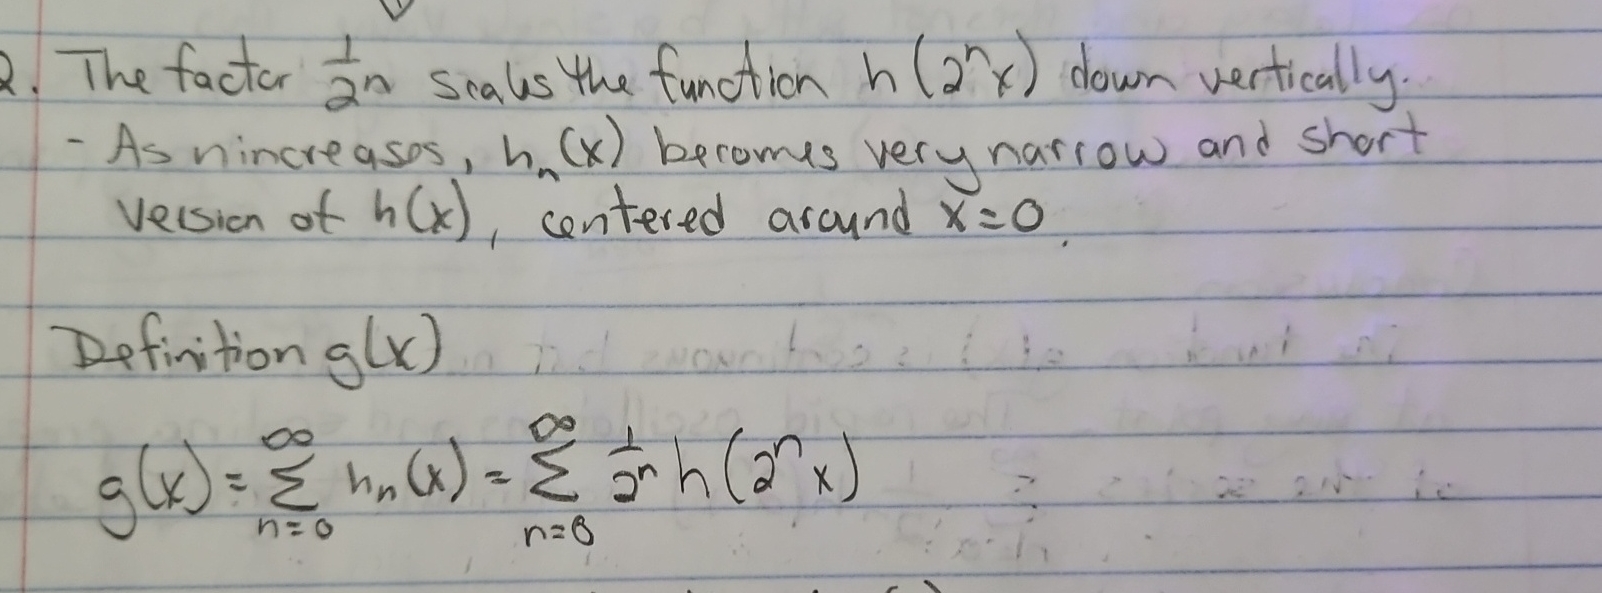 2. The factor 1/2^n scales the function h(2^n x) down vertically.
- As n increases, h_n(x) becomes very narrow and short
version of h(x), centered around x=0.
Definition g(x)
g(x) = ∑_{n=0}^{∞} h_n(x) = ∑_{n=0}^{∞} 1/2^n h(2^n x)